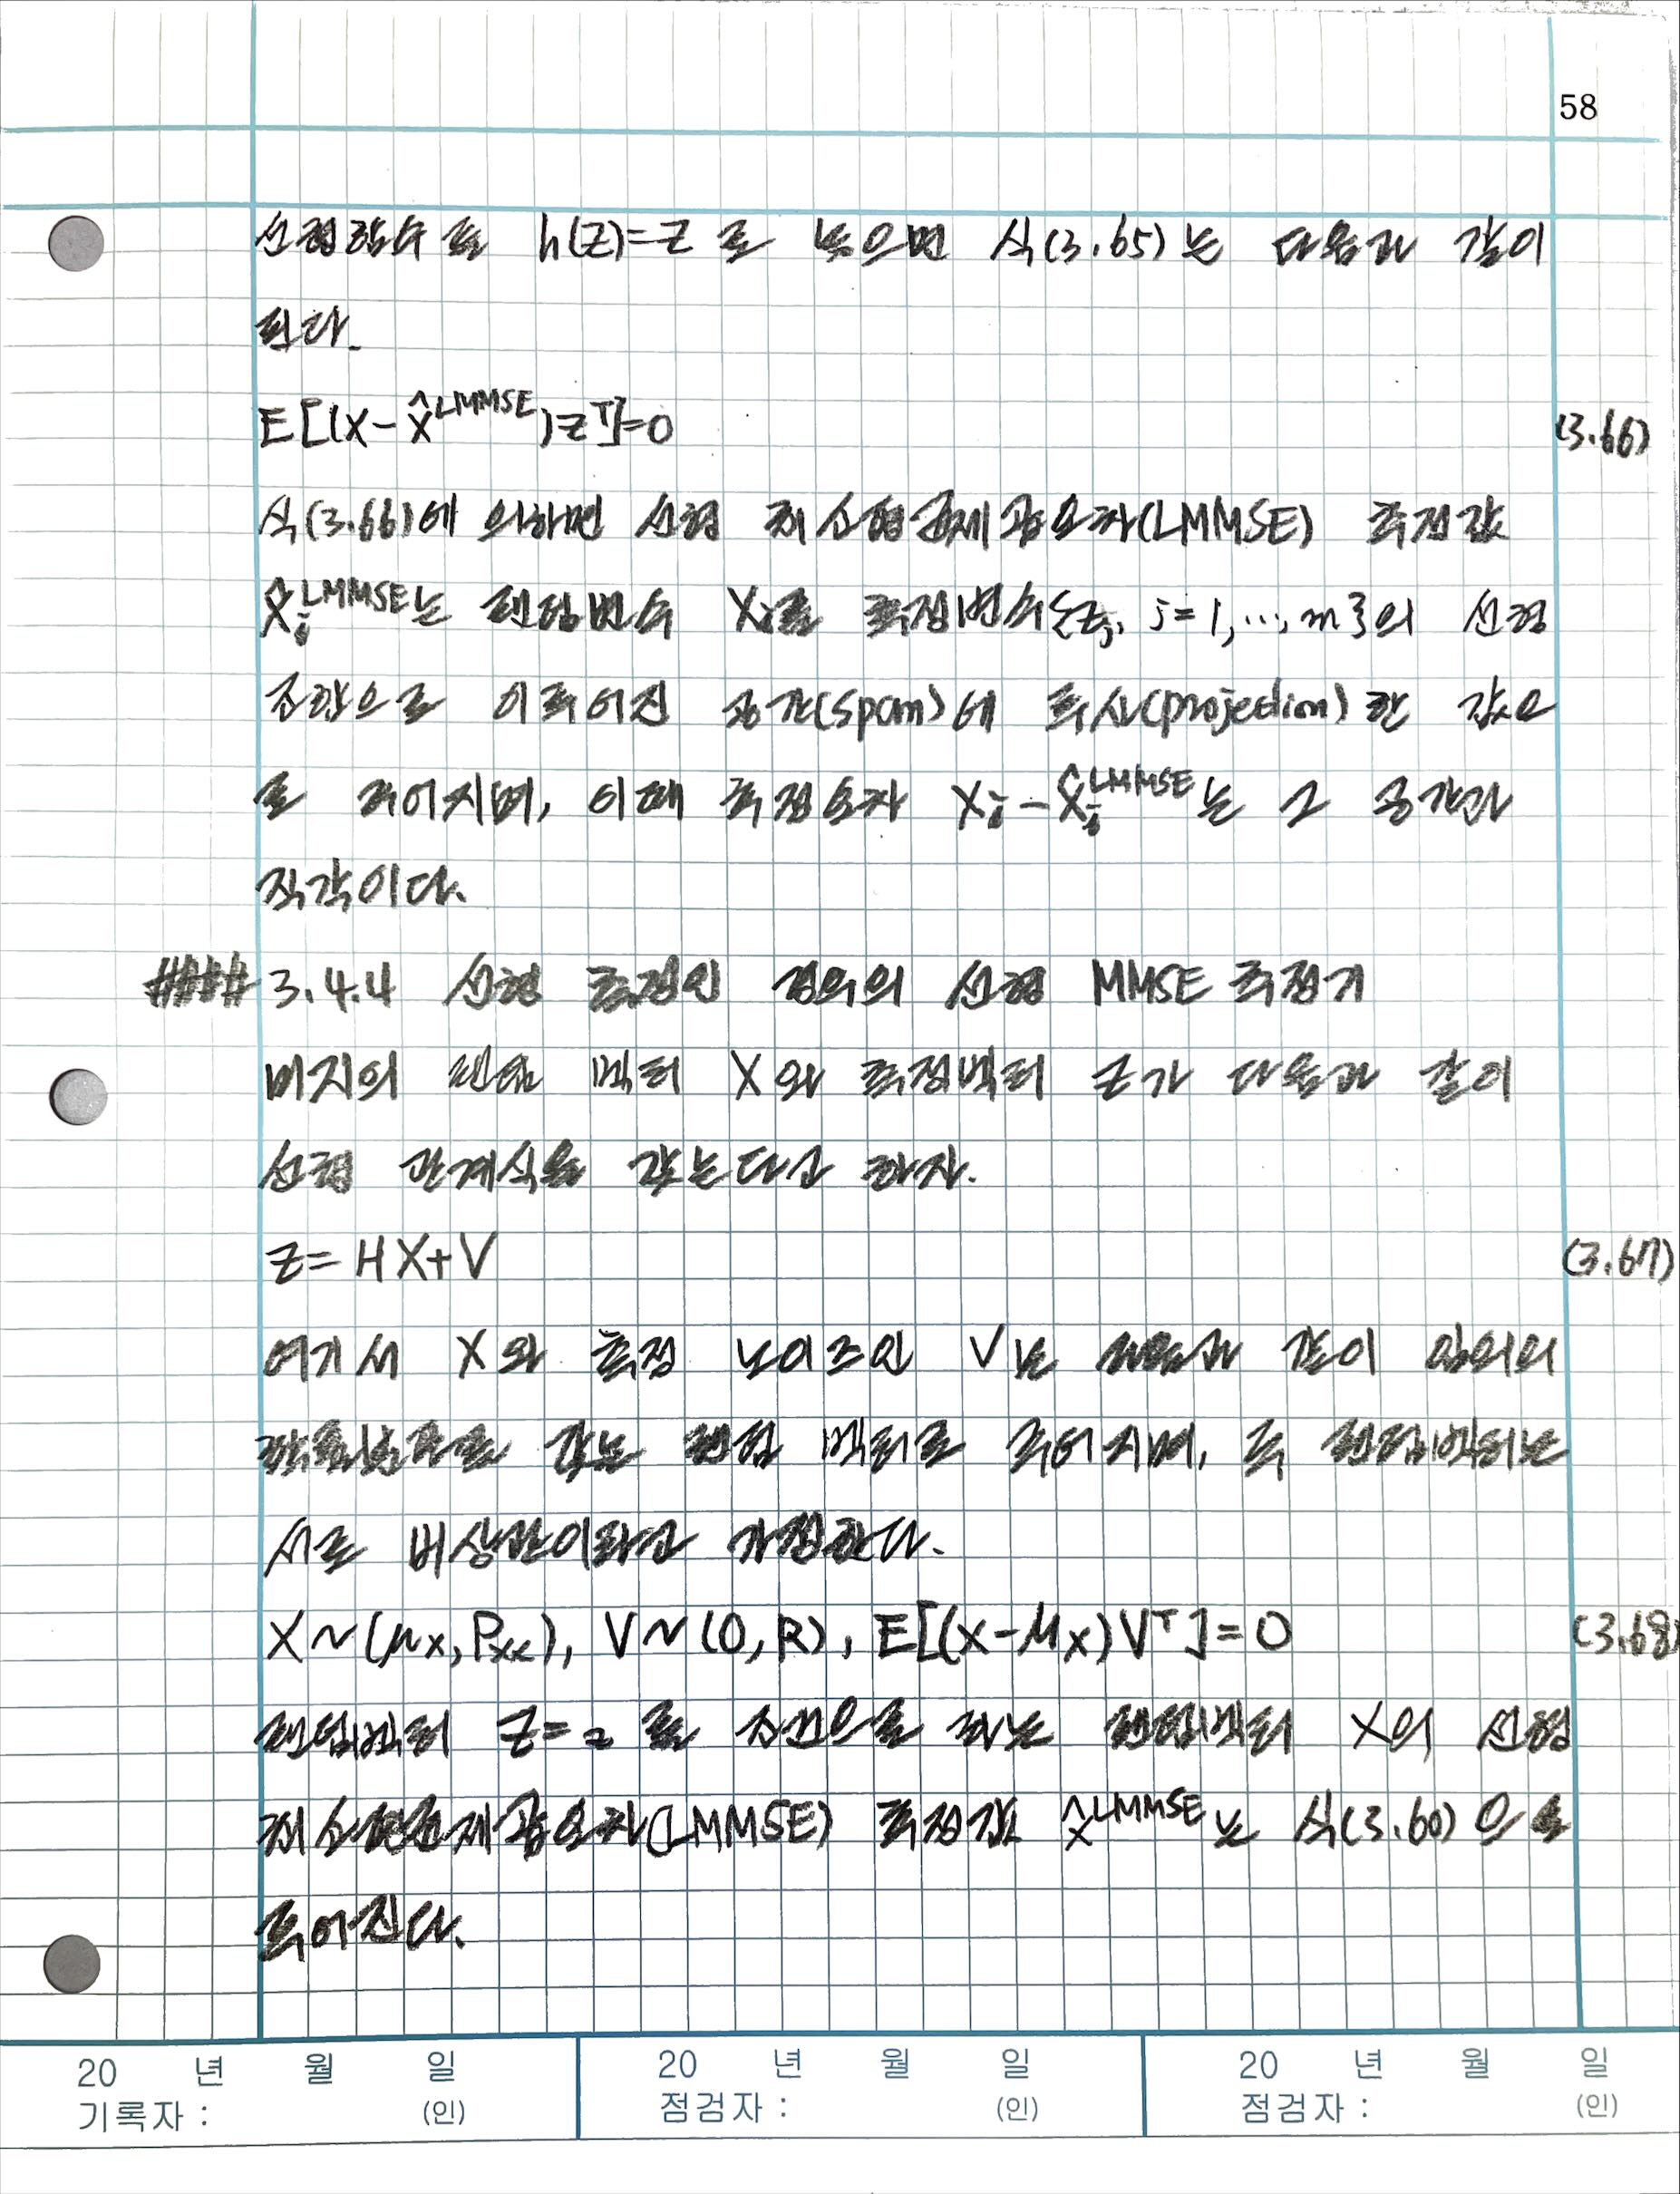 58
선형함수를 h(z)=z로 놓으면 식(3.65)는 다음과 같이
된다.
E[(X-x̂^LMMSE)Z^T]=0 (3.66)
식(3.66)에 의하면 선형 최소평균제곱오차(LMMSE) 추정값
x̂_i^LMMSE는 랜덤변수 X_i를 측정변수{Z_j, j=1,...,m}의 선형
조합으로 이루어진 공간(span)에 투사(projection)한 값으
로 주어지며, 이때 추정오차 X_i-x̂_i^LMMSE는 그 공간과
직각이다.
#### 3.4.4 선형 측정인 경우의 선형 MMSE 추정기
미지의 랜덤 벡터 X와 측정벡터 Z가 다음과 같이
선형 관계식을 갖는다고 하자.
Z=HX+V (3.67)
여기서 X와 측정 노이즈인 V는 다음과 같이 임의의
확률분포를 갖는 랜덤 벡터로 주어지며, 두 랜덤벡터는
서로 비상관이라고 가정한다.
X~(μ_X, P_XX), V~(0,R), E[(X-μ_X)V^T]=0 (3.68)
랜덤벡터 Z=z를 조건으로 하는 랜덤벡터 X의 선형
최소평균제곱오차(LMMSE) 추정값 x̂^LMMSE는 식(3.60)으로
주어진다.
20 년 월 일 20 년 월 일 20 년 월 일
기록자 : (인) 점검자 : (인) 점검자 : (인)